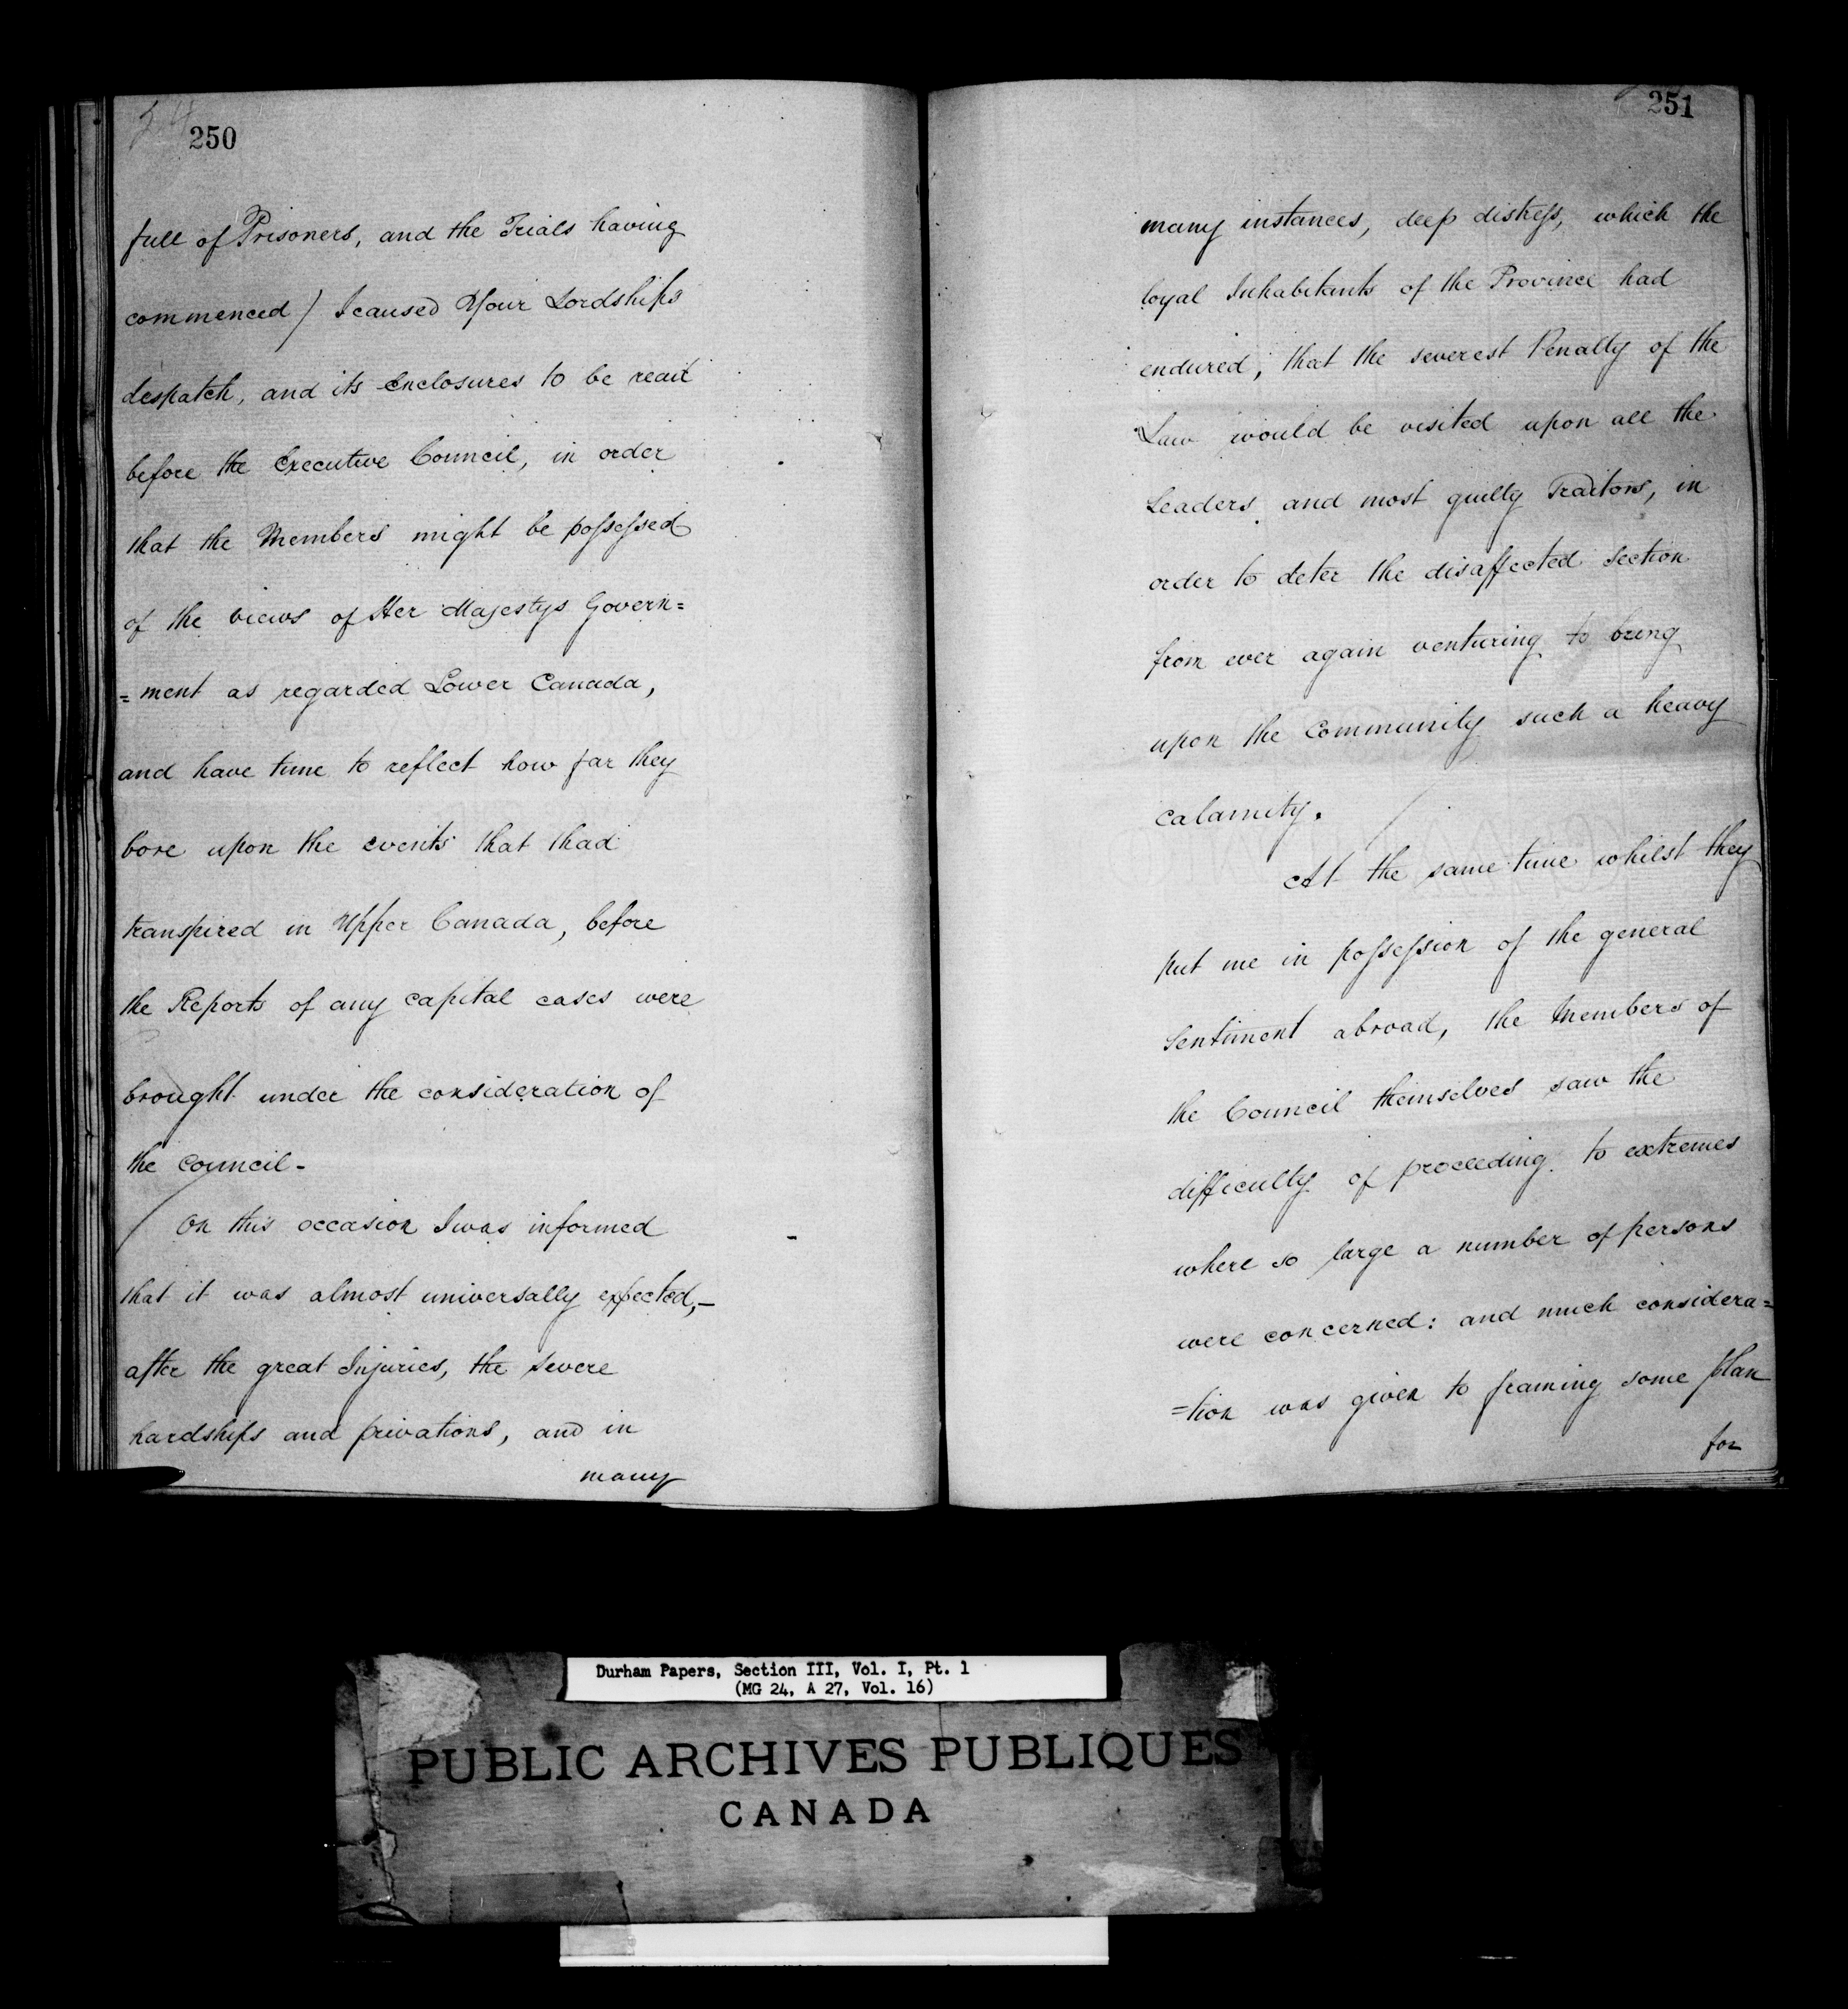 250
full of Prisoners, and the Trials having
commenced) I caused Your Lordships
despatch, and its Enclosures to be read
before the Executive Council, in order
that the Members might be possessed
of the views of Her Majestys Govern=
=ment as regarded Lower Canada,
and have time to reflect how far they
bore upon the events that thad
transpired in Upper Canada, before
the Reports of any capital cases were
brought under the consideration of
the Council-
On this occasion I was informed
that it was almost universally expected,-
after the great Injuries, the severe
hardships and privations, and in
many
251
many instances, deep distress, which the
loyal Inhabitants of the Province had
endured, that the severest Penalty of the
Law would be visited upon all the
Leaders and most guilty Traitors, in
order to deter the disaffected Section
from ever again venturing to bring
upon the Community such a heavy
calamity.
At the same time whilst they
put me in possession of the general
Sentiment abroad, the Members of
the Council themselves saw the
difficulty of proceeding to extremes
where so large a number of persons
were concerned: and much considera=
=tion was given to framing some plan
for
Durham Papers, Section III, Vol. I, Pt. 1
(MG 24, A 27, Vol. 16)
PUBLIC ARCHIVES PUBLIQUES
CANADA